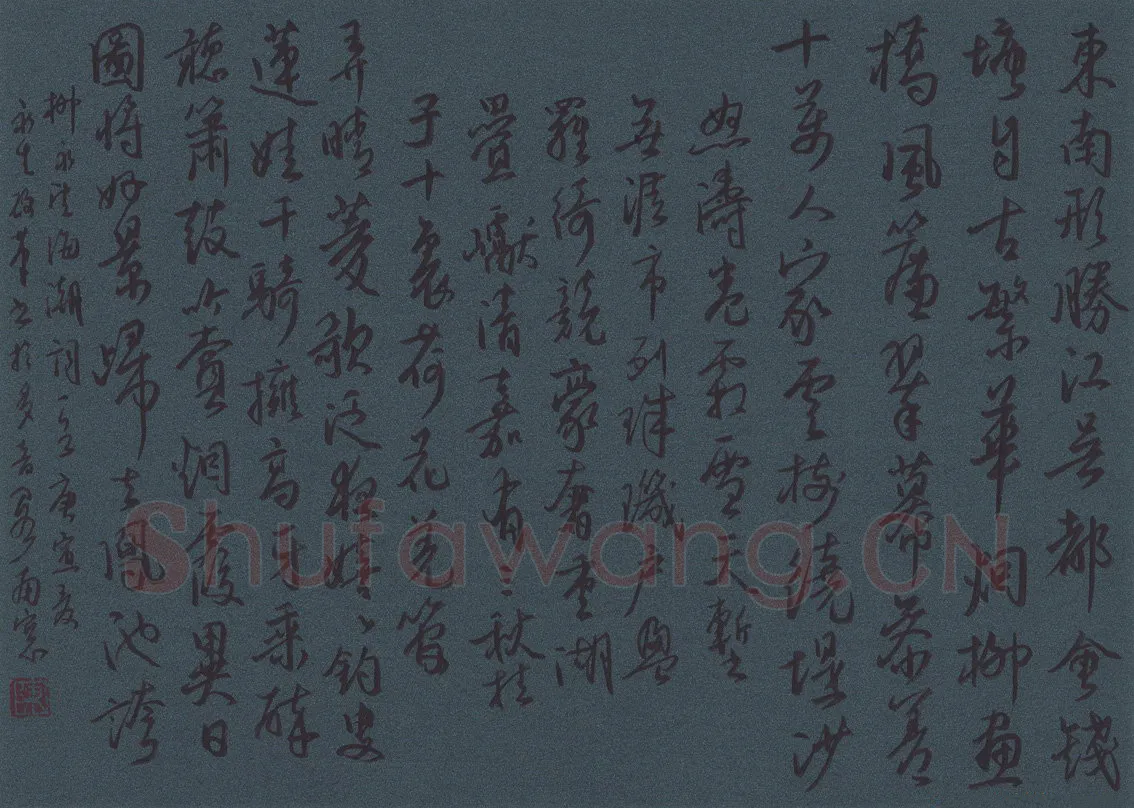 東南形勝江吳都會錢
塘自古繁華烟柳畫
橋風簾翠幕參差
十萬人家雲樹繞堤沙
怒濤卷霜雪天塹
無涯市列珠璣戶盈
羅綺競豪奢重湖
疊巘清嘉有三秋桂
子十裏荷花羌管
弄晴菱歌泛夜嬉嬉釣叟
蓮娃千騎擁高牙乘醉
聽簫鼓吟賞烟霞異日
圖將好景歸去鳳池誇
柳永望海潮詞一首庚寅夏
永生 書於 雨窗
Shufawang.CN